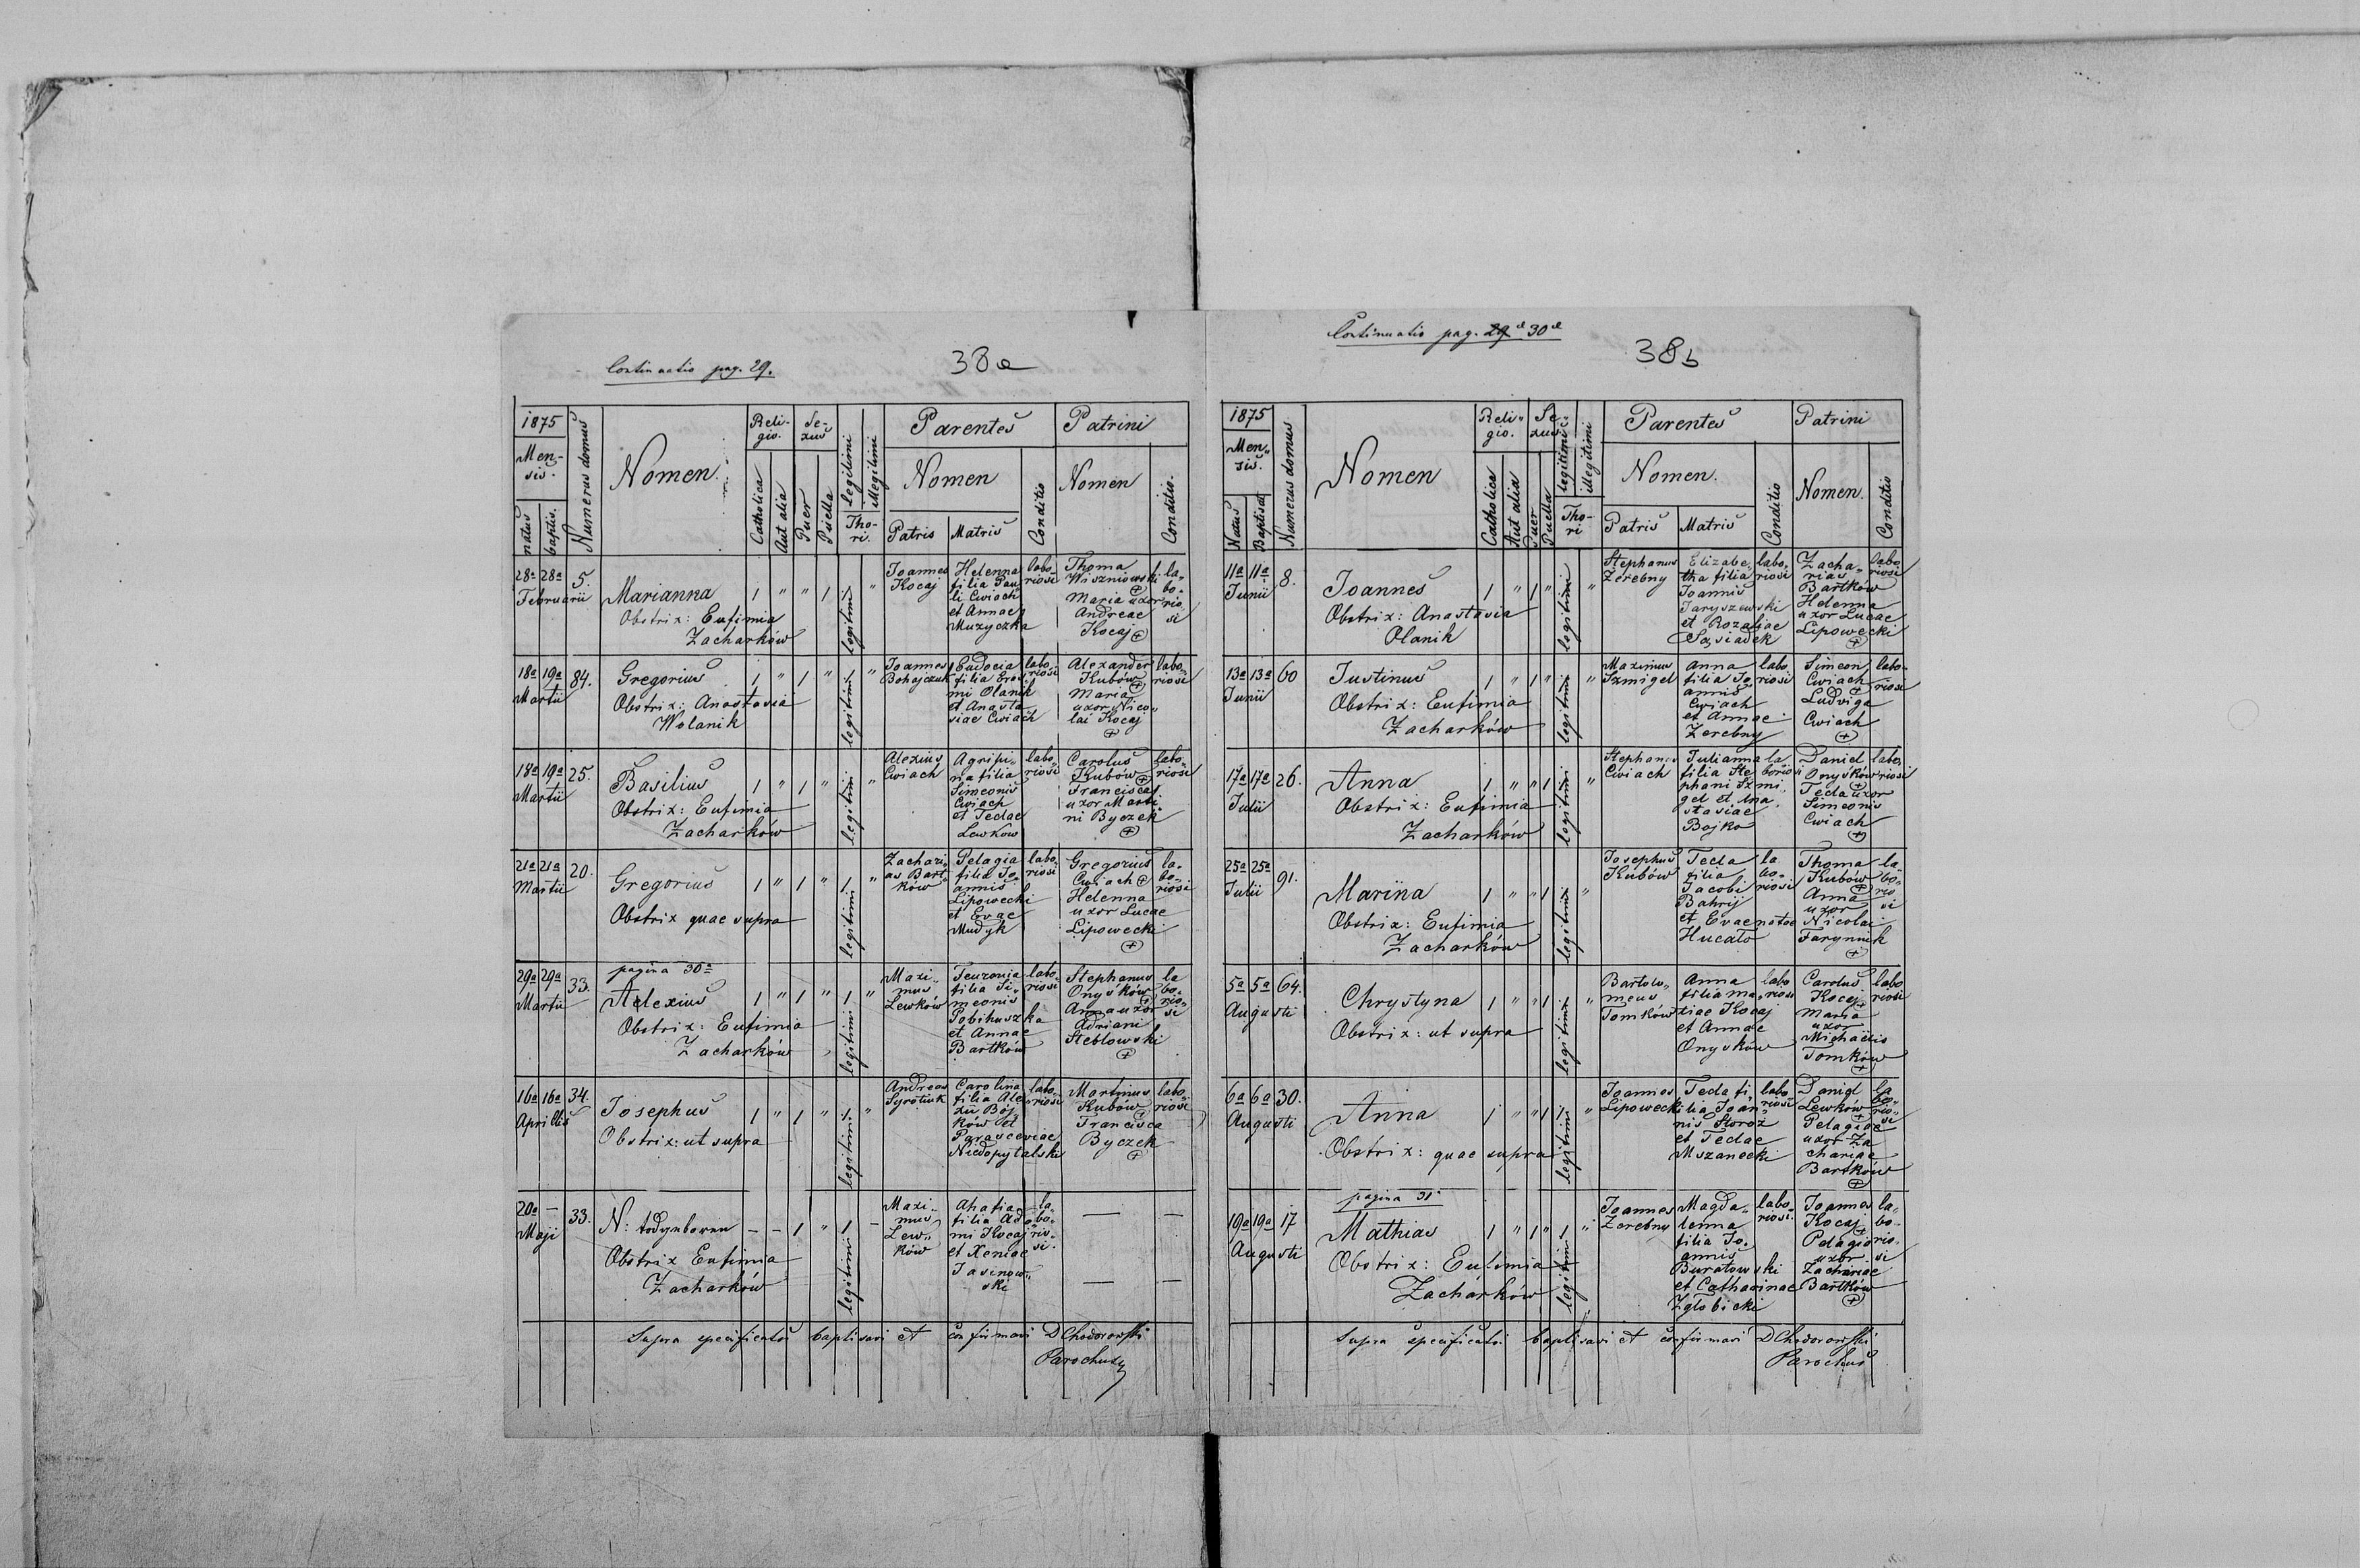 Continuatio pag. 29.
38a
1875
Mensis.
natus
baptis.
Numerus domus
Nomen.
Religio.
Catholica
Aut alia
Sexus
Puer
Puella
legitimi
illegitimi
Thori.
Parentes
Nomen
Patris
Matris
Conditio
Patrini
Nomen
Conditio.
28a 28a
Februarii
5.
Marianna
Obstrix: Eufimia
Zacharków
1 " " 1 1 "
legitimi
Joannes
Kocaj
Helenna
filia Pau
li Cwiach
et Annae
Muzyczka
labo-
riosi
Thoma
Wiszniowski
Maria uxor
Andreae
Kocaj
la-
bo-
rio
si
18a 19a
Martii
84.
Gregorius
Obstrix: Anastasia
Wolanik
1 " 1 " 1 "
legitimi
Joannes
Bohajczuk
Eudocia
filia Eras
mi Olanik
et Anasta
siae Cwiach
labo-
riosi
Alexander
Kubów
Maria
uxor Nico-
lai Kocaj
labo-
riosi
18a 19a
Martii
25.
Basilius
Obstrix: Eufimia
Zacharków
1 " 1 " 1 "
legitimi
Alexius
Cwiach
Agripi-
na filia
Simeonis
Cwiach
et Teclae
Lewkow
labo-
riosi
Carolus
Kubów
Francisca
uxor Marti
ni Byczek
labo-
riosi
21a 21a
Martii
20.
Gregorius
Obstrix quae supra
1 " 1 " 1 "
legitimi
Zachari-
as Bart
ków
Pelagia
filia Jo-
annis
Lipowecki
et Evae
Mudyk
labo-
riosi
Gregorius
Cwiach
Helenna
uxor Lucae
Lipowecki
la-
bo-
riosi
29a 29a
Martii
33.
pagina 30a
Alexius
Obstrix: Eufimia
Zacharków
1 " 1 " 1 "
legitimi
Maxi-
mus
Lewków
filia Si-
meonis
Pobihuszka
et Annae
Bartków
labo-
riosi
Stephanus
Onysków
Anna uxor
Adriani
Steblowski
la
bo-
rio-
si
16a 16a
Aprilis
34.
Josephus
Obstrix: ut supra
1 " 1 " 1 "
legitimi
Andreas
Syrotiuk
Carolina
filia Ale
xii Boj
ków et
Parasceviae
Niedopytalski
labo-
riosi
Martinus
Kubów
Francisca
Byczek
labo-
riosi
20a —
Maji
33.
Obstrix Eufimia
Zacharków
— — 1 " 1 —
legitimi
Maxi-
mus
Lew-
ków
Ahafia
filia Ada-
mi Kocaj
et Xeniae
Jasinow-
ski
la-
bo-
rio-
si.
Supra specificatos baptisavi et confirmavi DChodorowski
Parochus
Continuatio pag. 29 et 30 et
38b
1875
Men-
sis.
Natus
Baptisat
Numerus domus
Nomen
Reli-
gio.
Catholica
Aut alia
Se-
xus
Puer
Puella
legitimi
illegitimi
Tho-
ri
Parentes
Nomen.
Patris
Matris
Conditio
Patrini
Nomen.
Conditio
11a 11a
Junii
8.
Joannes
Obstrix: Anastasia
Olanik
1 " 1 " "
legitimi
Stephanus
Zerebny
Elizabe-
tha filia
Joannis
Jaryszewski
et Rozaliae
Sąsiadek
labo-
riosi
Zacha-
rias
Bartków
Helenna
uxor Lucae
Lipowecki
labo
riosi
13a 13a
Junii
60
Justinus
Obstrix: Eufimia
Zacharków
1 " 1 " 1 "
legitimi
Maximus
Szmigel
Anna
filia Jo
annis
Cwiach
et Annae
Zerebny
labo
riosi
Simeon
Cwiach
Ludviga
Cwiach
labo-
riosi
17a 17a
Julii
26.
Anna
Obstrix: Eufimia
Zacharków
1 " " 1 1 "
legitimi
Stephanus
Cwiach
Julianna
filia Ste
phani Szmi
gel et Ana
stasiae
Bojko
la
boriosi
Daniel
Onysków
Tecla uxor
Simeonis
Cwiach
labo
riosi
25a 25a
Julii
91.
Marina
Obstrix: Eufimia
Zacharków
1 " " 1 1 "
legitimi
Josephus
Kubów
Tecla
filia
Jacobi
Bahrij
et Evae natae
Hucało
la
bo-
riosi
Thoma
Kubów
Anna
uxor
Nicolai
Farynink
la-
bo-
rio
si
5a 5a
Augusti
64.
Chrystyna
Obstrix: ut supra
1 " " 1 1 "
legitimi
Bartolo-
meus
Tomków
Anna
filia Ma-
ziae Kocaj
et Annae
Onysków
labo
riosi
Carolus
Kocaj
Maria
uxor
Michaëlis
Tomków
labo
riosi
6a 6a
Augusti
30.
Anna
Obstrix: quae supra
1 " " 1 1 "
legitimi
Joannes
Lipowecki
Tecla fi
lia Joan-
nis Storoż
et Teclae
Mszanecki
labo
riosi
Daniel
Lewków
Pelagia
uxor Za
chariae
Bartków
la
bo-
rio-
si
19a 19a
Augusti
17
pagina 31a
Mathias
Obstrix: Eufimia
Zacharków
1 " 1 " 1 "
legitimi
Joannes
Zerebny
Magda-
lenna
filia Jo-
annis
Buratowski
et Catharinae
Zglobicki
labo
riosi.
Joannes
Kocaj
Pelagia
uxor
Zachariae
Bartków
la-
bo-
rio-
si
Supra specificatos baptisavi et confirmavi DChodorowski
Parochus